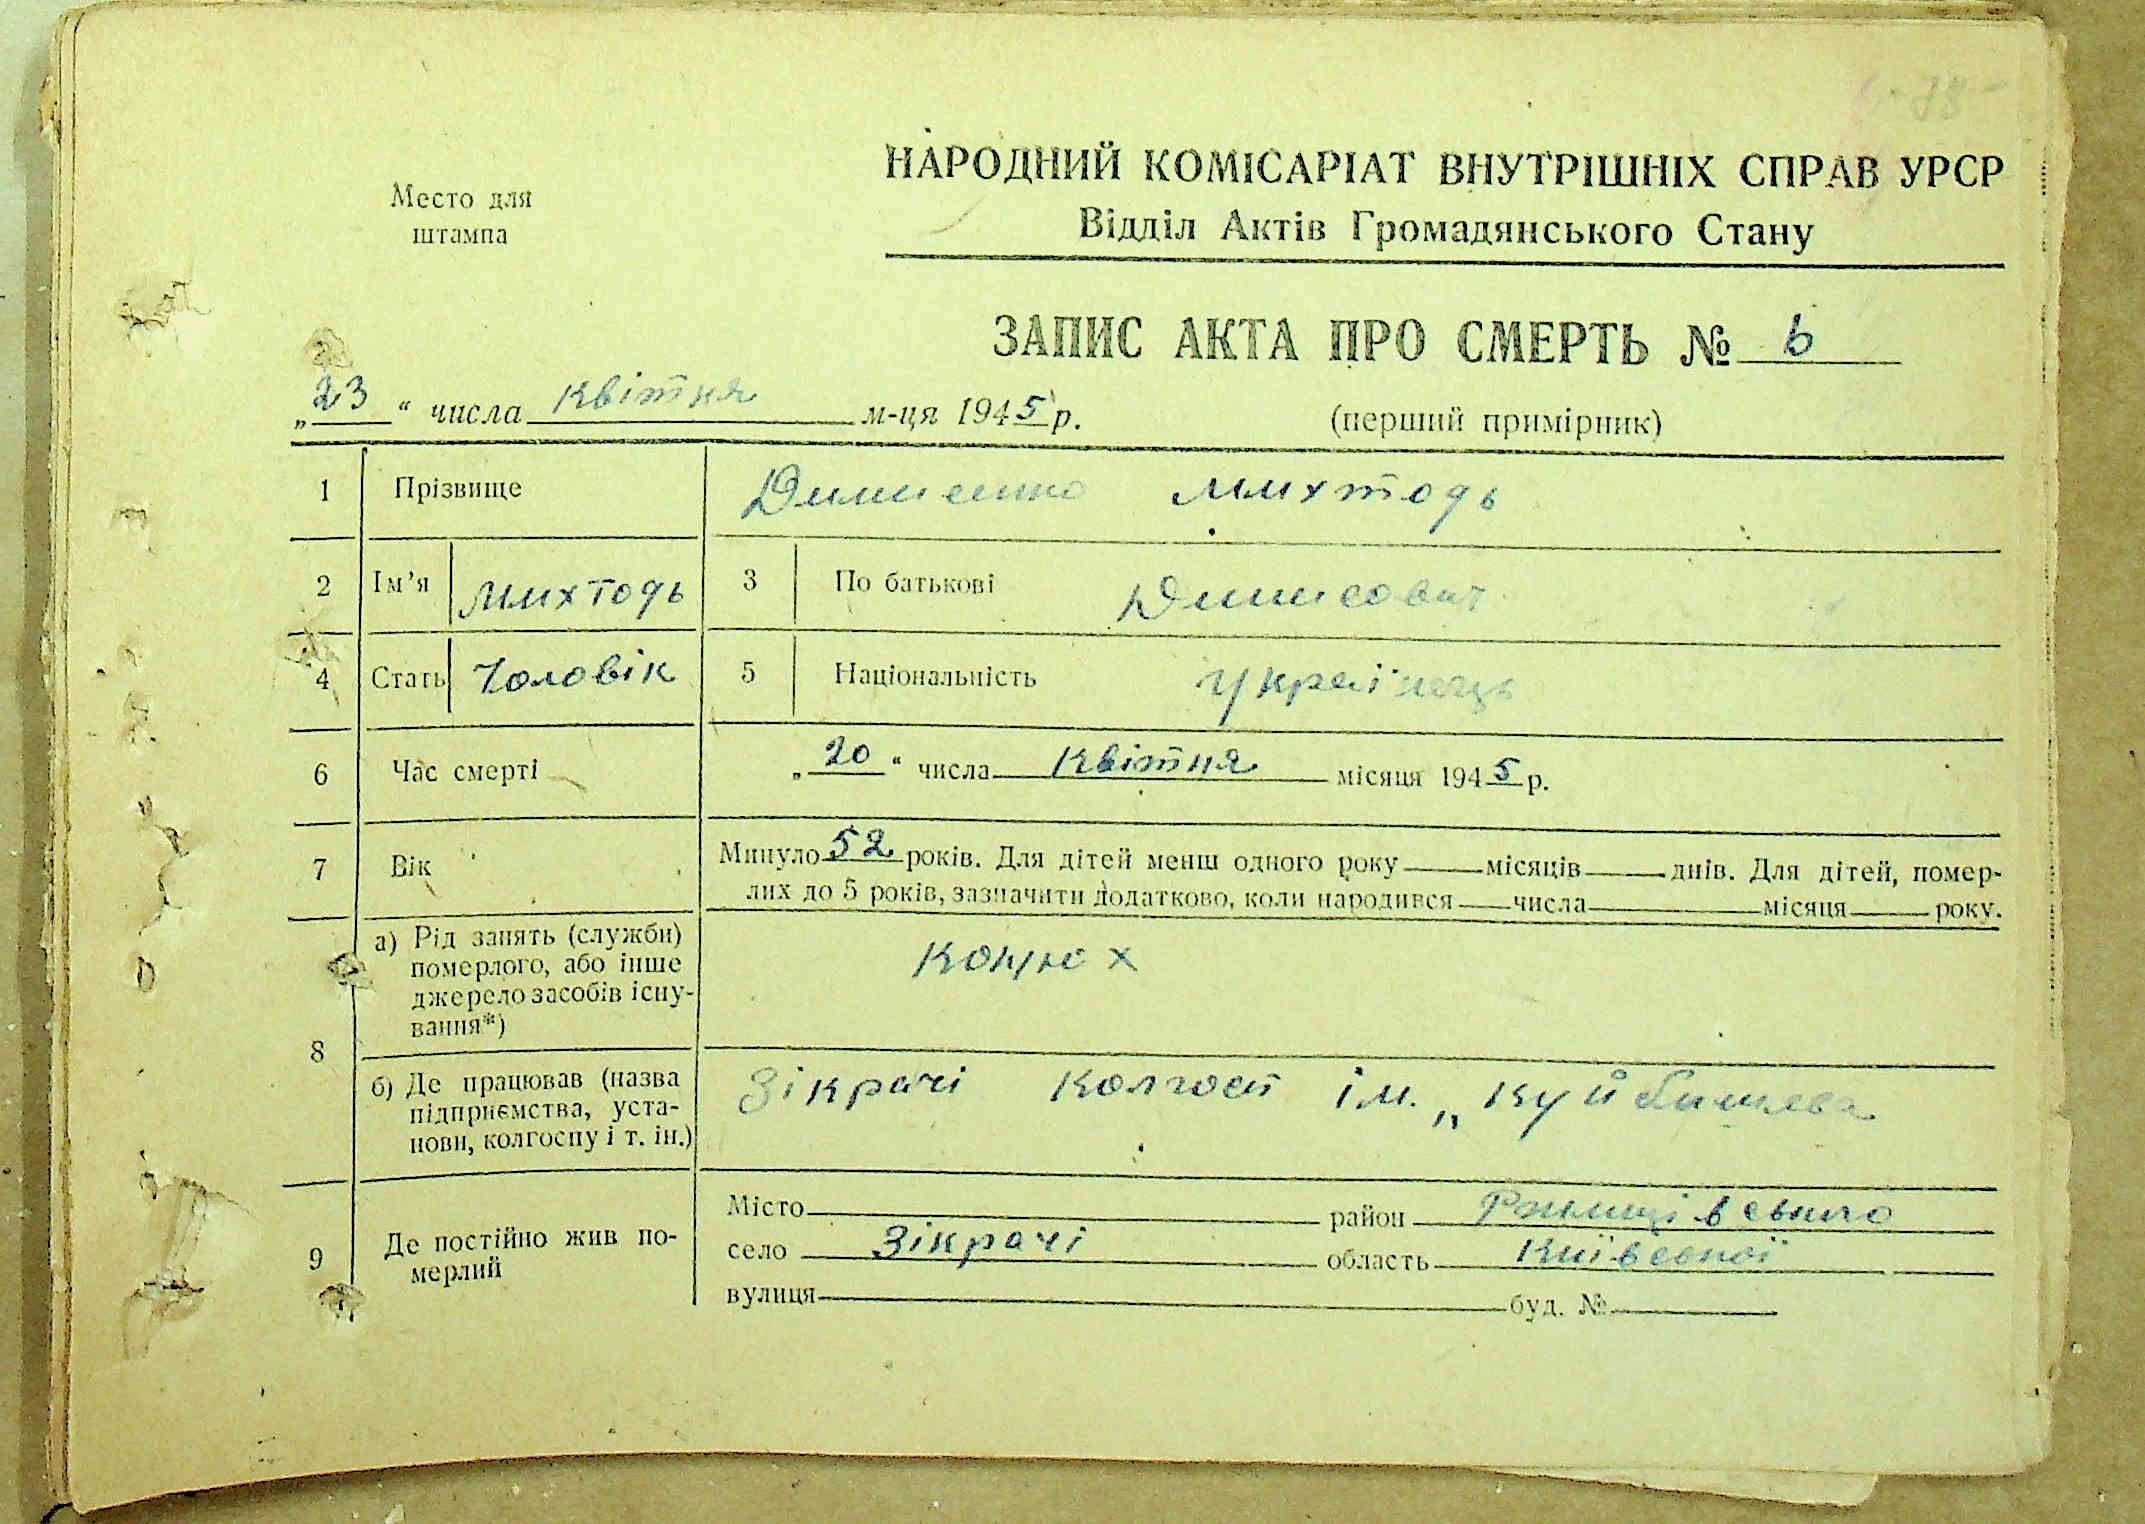 Место для
штампа
НАРОДНИЙ КОМІСАРІАТ ВНУТРІШНІХ СПРАВ УРСР
Відділ Актів Громадянського Стану
ЗАПИС АКТА ПРО СМЕРТЬ № 6
„23“ числа квітня м-ця 1945 р.
(перший примірник)
1 Прізвище Михтодь
2 Ім’я Михтодь 3 По батькові Денисович
4 Стать Чоловік 5 Національність Українець
6 Час смерті „20“ числа Квітня місяця 1945 р.
7 Вік Минуло 52 років. Для дітей менш одного року місяців днів. Для дітей, помер-
лих до 5 років, зазначити додатково, коли народився числа місяця року.
8 а) Рід занять (служби)
померлого, або інше
джерело засобів існу-
вання*)
Конюх
б) Де працював (назва
підприємства, уста-
нови, колгоспу і т. ін.)
Зікрачі Колгосп ім. „Куйбишева
9 Де постійно жив по-
мерлий
Місто район Ржищівського
село Зікрачі область Київської
вулиця буд. №